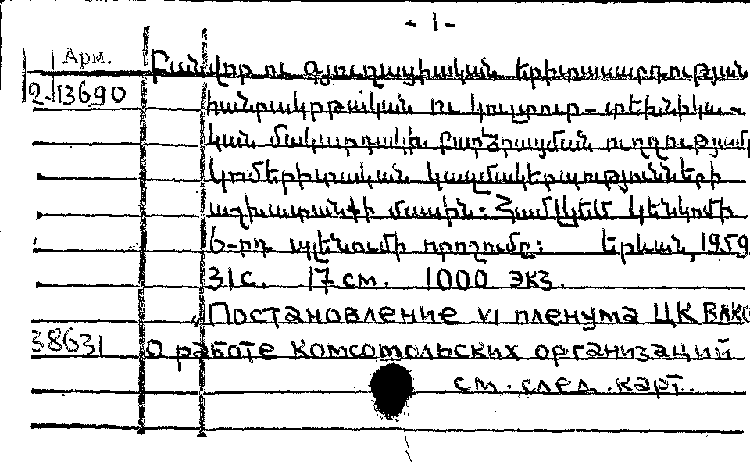 - 1 -
Арм.
Բանվոր ու գյուղացիական երիտասարդության
2-13690
հանրակրթական ու կուլտուր-տեխնիկա-
կան մակարդակի բարձրացման ուղղությամբ
կոմերիտական կազմակերպությունների
աշխատանքի մասին: ՀամԼԿԵՄ կենկոմի
6-րդ պլենումի որոշումը: Երևան, 1959
31с. 17 см. 1000 экз.
Постановление VI пленума ЦК ВЛКС
38631
о работе комсомольских организаций
см. след. карт.